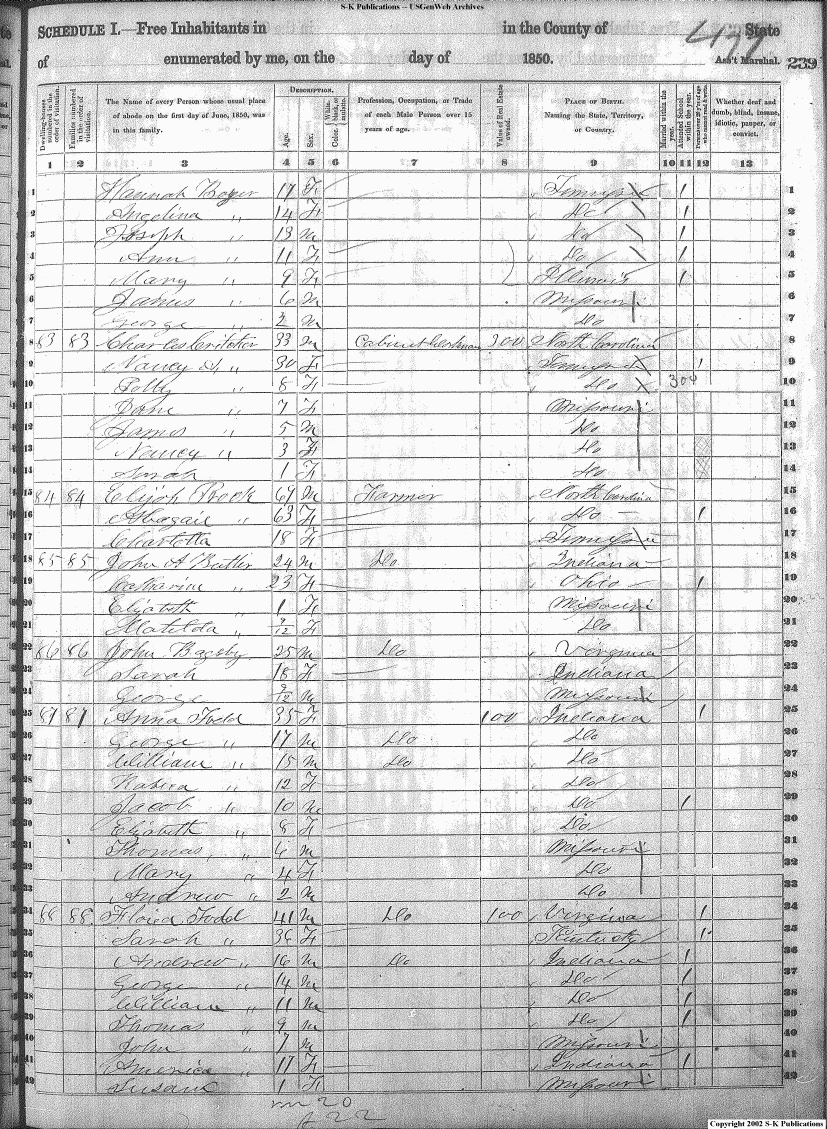 S-K Publications -- USGenWeb Archives
SCHEDULE I.—Free Inhabitants in in the County of State
of enumerated by me, on the day of 1850. Ass't Marshal. 239
Dwelling-houses numbered in the order of visitation. Families numbered in the order of visitation. The Name of every Person whose usual place of abode on the first day of June, 1850, was in this family. DESCRIPTION. Age. Sex. Color, White, black, or mulatto. Profession, Occupation, or Trade of each Male Person over 15 years of age. Value of Real Estate owned. PLACE OF BIRTH. Naming the State, Territory, or Country. Married within the year. Attended School within the year. Persons over 20 y'rs of age who cannot read & write. Whether deaf and dumb, blind, insane, idiotic, pauper, or convict.
1 2 3 4 5 6 7 8 9 10 11 12 13
1 Hannah 17 F / 1
2 Angelina " 14 F Do / 2
3 Joseph " 13 M Do / 3
4 Ann " 11 F Do / 4
5 Mary " 9 F Illinois / 5
6 James " 6 M Missouri 6
7 George " 2 M Do 7
8 83 83 Charles 33 M Cabinet Workman 300 North Carolina 8
9 Nancy " 30 F / 9
10 Polly " 8 F Do 304 10
11 Jane " 7 F Missouri 11
12 James " 5 M Do 12
13 Nancy " 3 F Do 13
14 Sarah 1 F Do 14
15 84 84 Elijah 69 M Farmer North Carolina 15
16 Abagail " 63 F Do / 16
17 Charlotta 18 F 17
18 85 85 John A Butler 24 M Do Indiana 18
19 Catharine " 23 F Ohio / 19
20 Eliabeth " 1 F Missouri 20
21 Matilda " F Do 21
22 86 86 John Bagby 25 M Do Virginia 22
23 Sarah " 18 F Indiana 23
24 George " M Missouri 24
25 87 87 Anna Todd 35 F 100 Indiana / 25
26 George " 17 M Do Do 26
27 William " 15 M Do Do 27
28 " 12 F Do 28
29 Jacob " 10 M Do / 29
30 Eliabeth " 8 F Do 30
31 Thomas " 6 M Missouri 31
32 Mary " 4 F Do 32
33 Andrew " 2 M Do 33
34 88 88 Todd 41 M Do 100 Virginia / 34
35 Sarah " 36 F Kentucky / 35
36 Andrew " 16 M Do Indiana / 36
37 George " 14 M Do / 37
38 William " 11 M Do / 38
39 Thomas " 9 M Do / 39
40 John " 7 M Missouri 40
41 America " 17 F Indiana / 41
42 Susan 1 F Missouri 42
m 20
f 22
Copyright 2002 S-K Publications